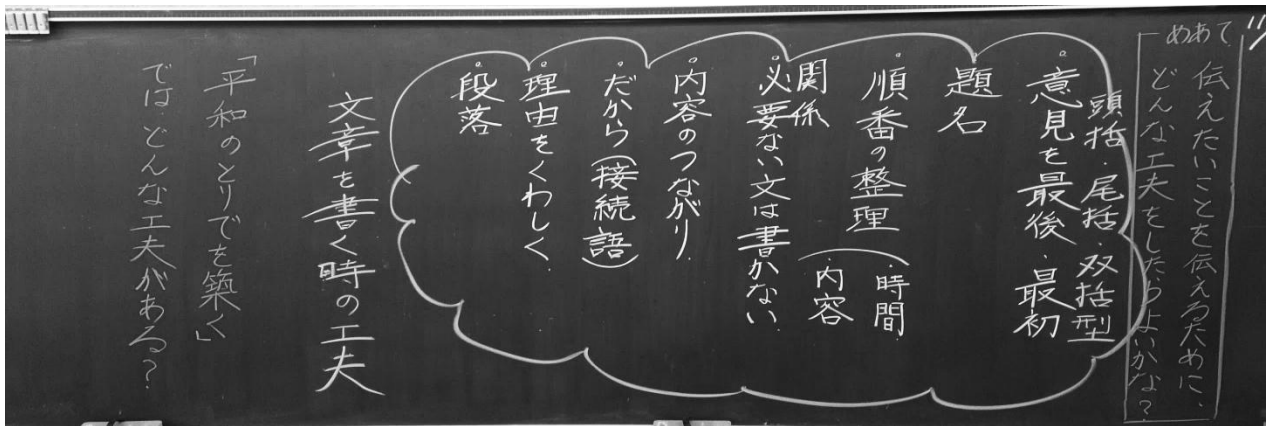 めあて
伝えたいことを伝えるために、
どんな工夫をしたらよいかな？
頭括・尾括・双括型
・意見を最後・最初
・題名
・順番の整理（・時間
・内容
関係
・必要ない文は書かない
・内容のつながり
・だから（接続語）
・理由をくわしく
・段落
文章を書く時の工夫
「平和のとりでを築く」
では、どんな工夫がある？